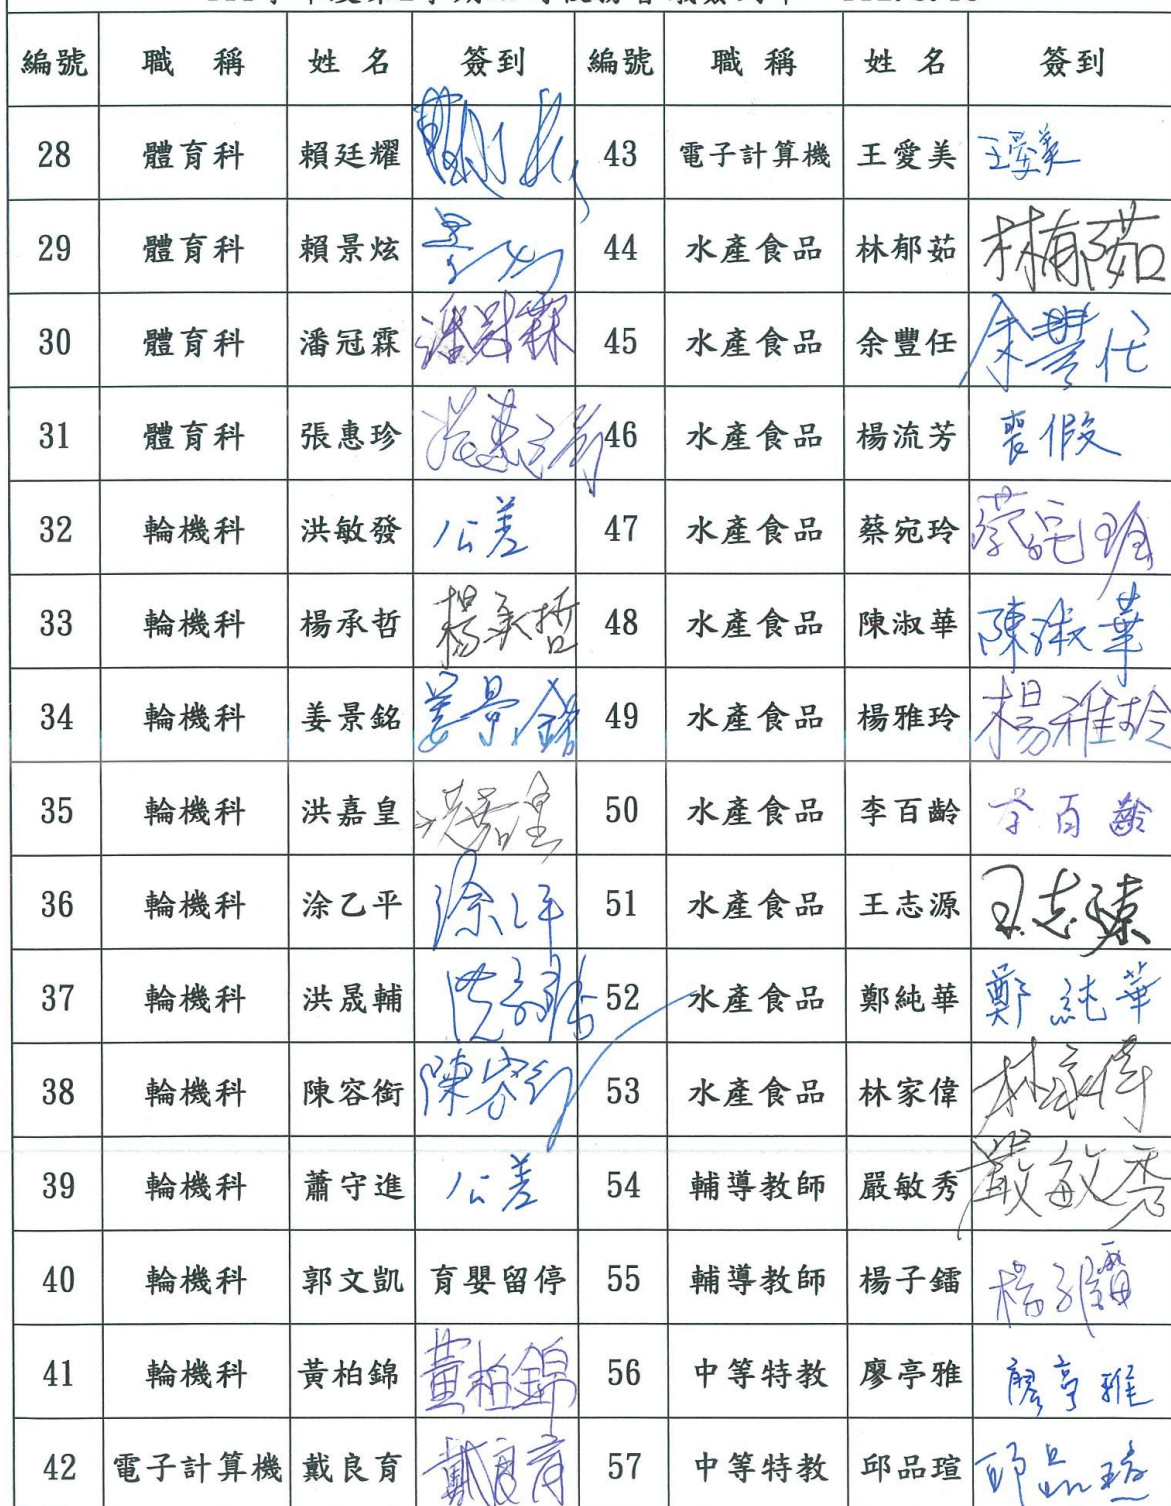 編號 職稱 姓名 簽到 編號 職稱 姓名 簽到
28 體育科 賴廷耀 43 電子計算機 王愛美 王愛美
29 體育科 賴景炫 44 水產食品 林郁茹 林郁茹
30 體育科 潘冠霖 潘冠霖 45 水產食品 余豐任 余豐任
31 體育科 張惠珍 46 水產食品 楊流芳 喪假
32 輪機科 洪敏發 公差 47 水產食品 蔡宛玲 蔡宛玲
33 輪機科 楊承哲 楊承哲 48 水產食品 陳淑華 陳淑華
34 輪機科 姜景銘 姜景銘 49 水產食品 楊雅玲 楊雅玲
35 輪機科 洪嘉皇 洪嘉皇 50 水產食品 李百齡 李百齡
36 輪機科 涂乙平 涂乙平 51 水產食品 王志源 王志源
37 輪機科 洪晟輔 52 水產食品 鄭純華 鄭純華
38 輪機科 陳容銜 陳容銜 53 水產食品 林家偉 林家偉
39 輪機科 蕭守進 公差 54 輔導教師 嚴敏秀 嚴敏秀
40 輪機科 郭文凱 育嬰留停 55 輔導教師 楊子鐳 楊子鐳
41 輪機科 黃柏錦 黃柏錦 56 中等特教 廖亭雅 廖亭雅
42 電子計算機 戴良育 戴良育 57 中等特教 邱品瑄 邱品瑄